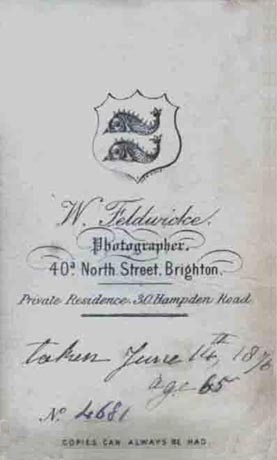 W. Feldwicke.
Photographer.
40ª North Street, Brighton.
Private Residence. 30 Hampden Road
taken June 14th, 1876
age 65
No 4681
COPIES CAN ALWAYS BE HAD.